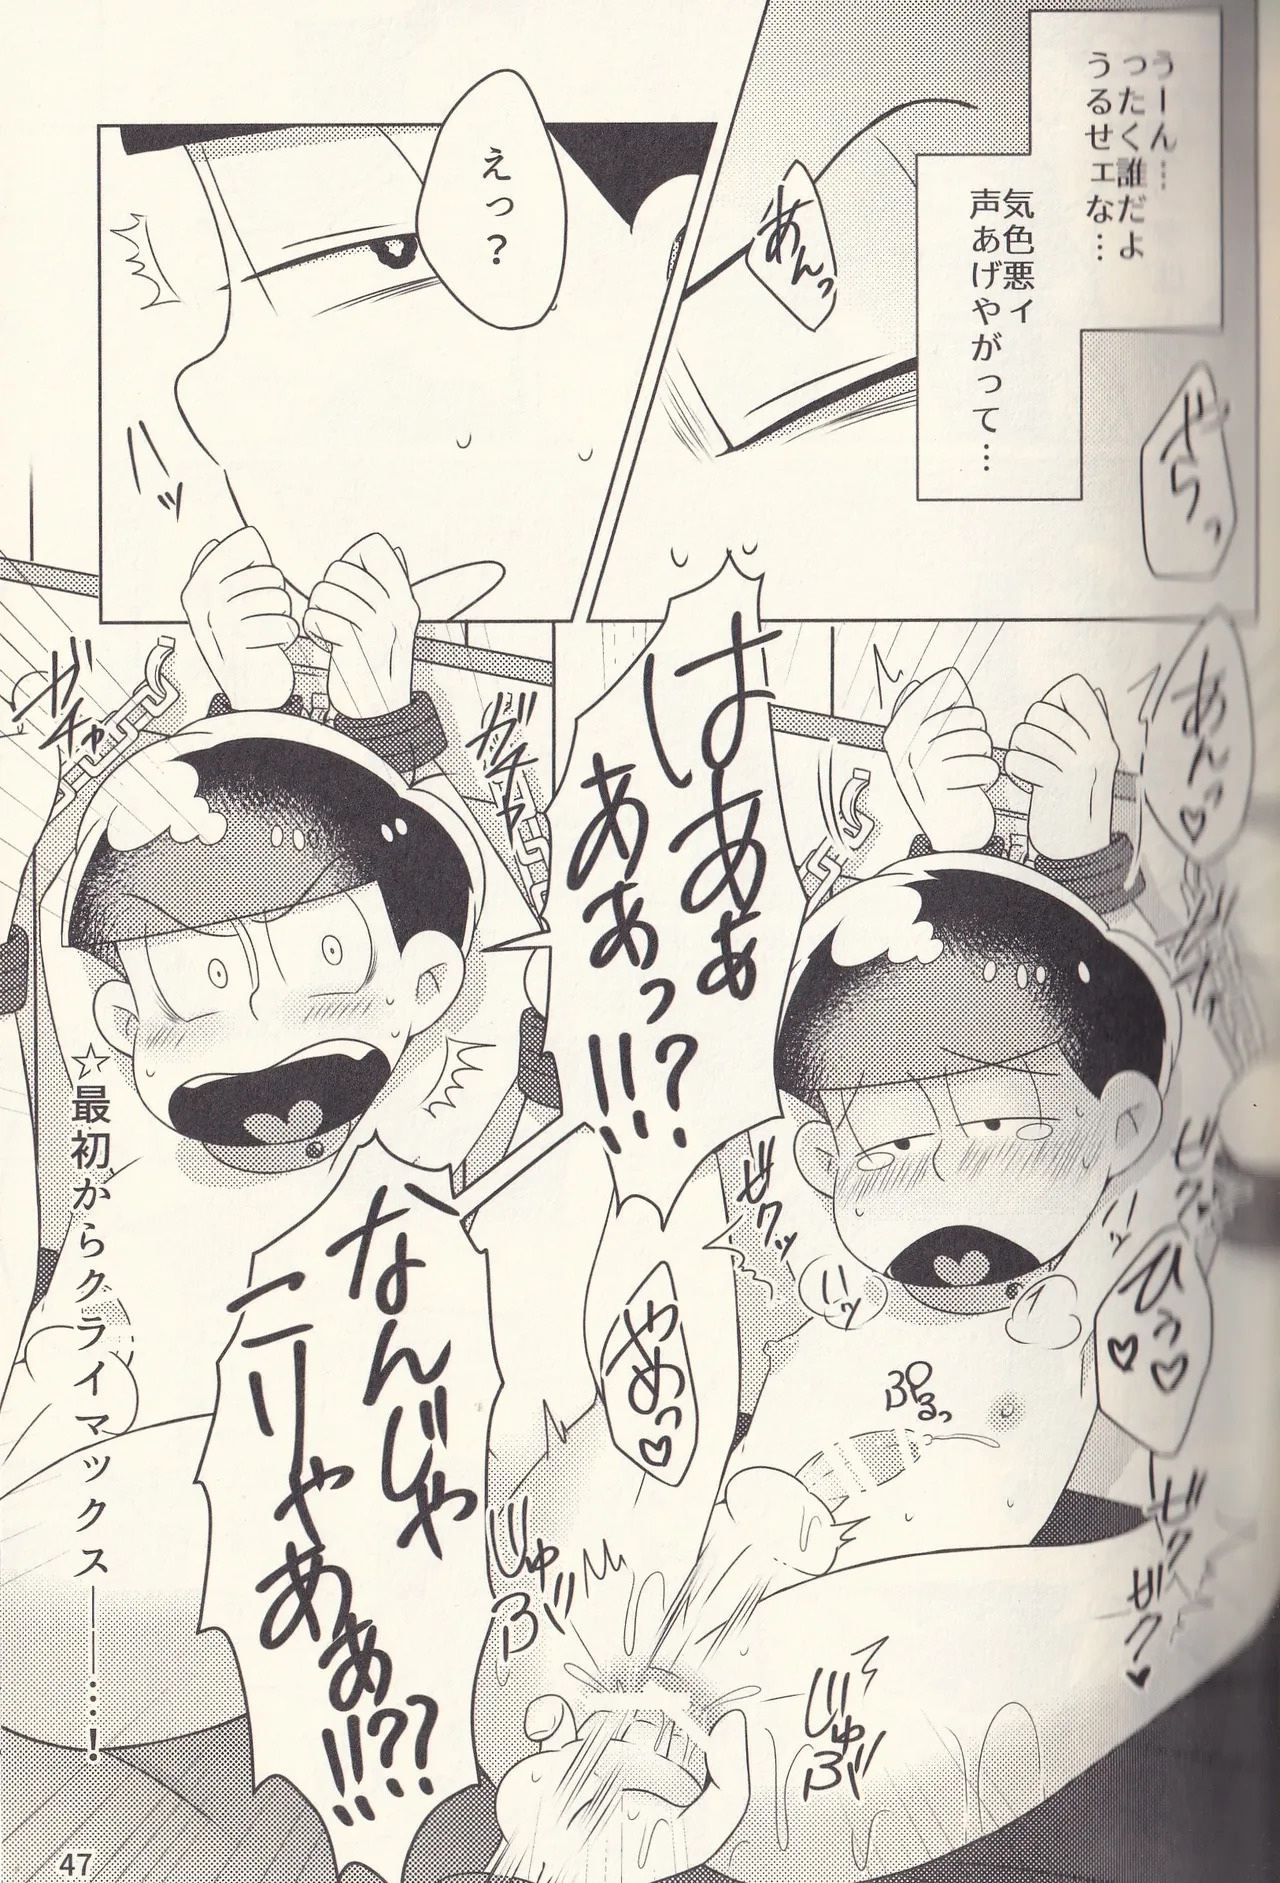 うーん…
ったく誰だよ
うるせェな…
気色悪ィ
声あげやがって…
あんっ
えっ？
ハッ
やらっ
あんっ♡
はあぁ
あぁあっ
!!!?
ガチャ
ガチャ
なんじゃ
こりゃあぁ
!!!??
ゼクッ
ハッ
ひぅ♡♡
ぷるっ
やめっ♡
じゅぶ
じゅぶ
ゼク
ビク♥
☆最初からクライマックス――…！
47